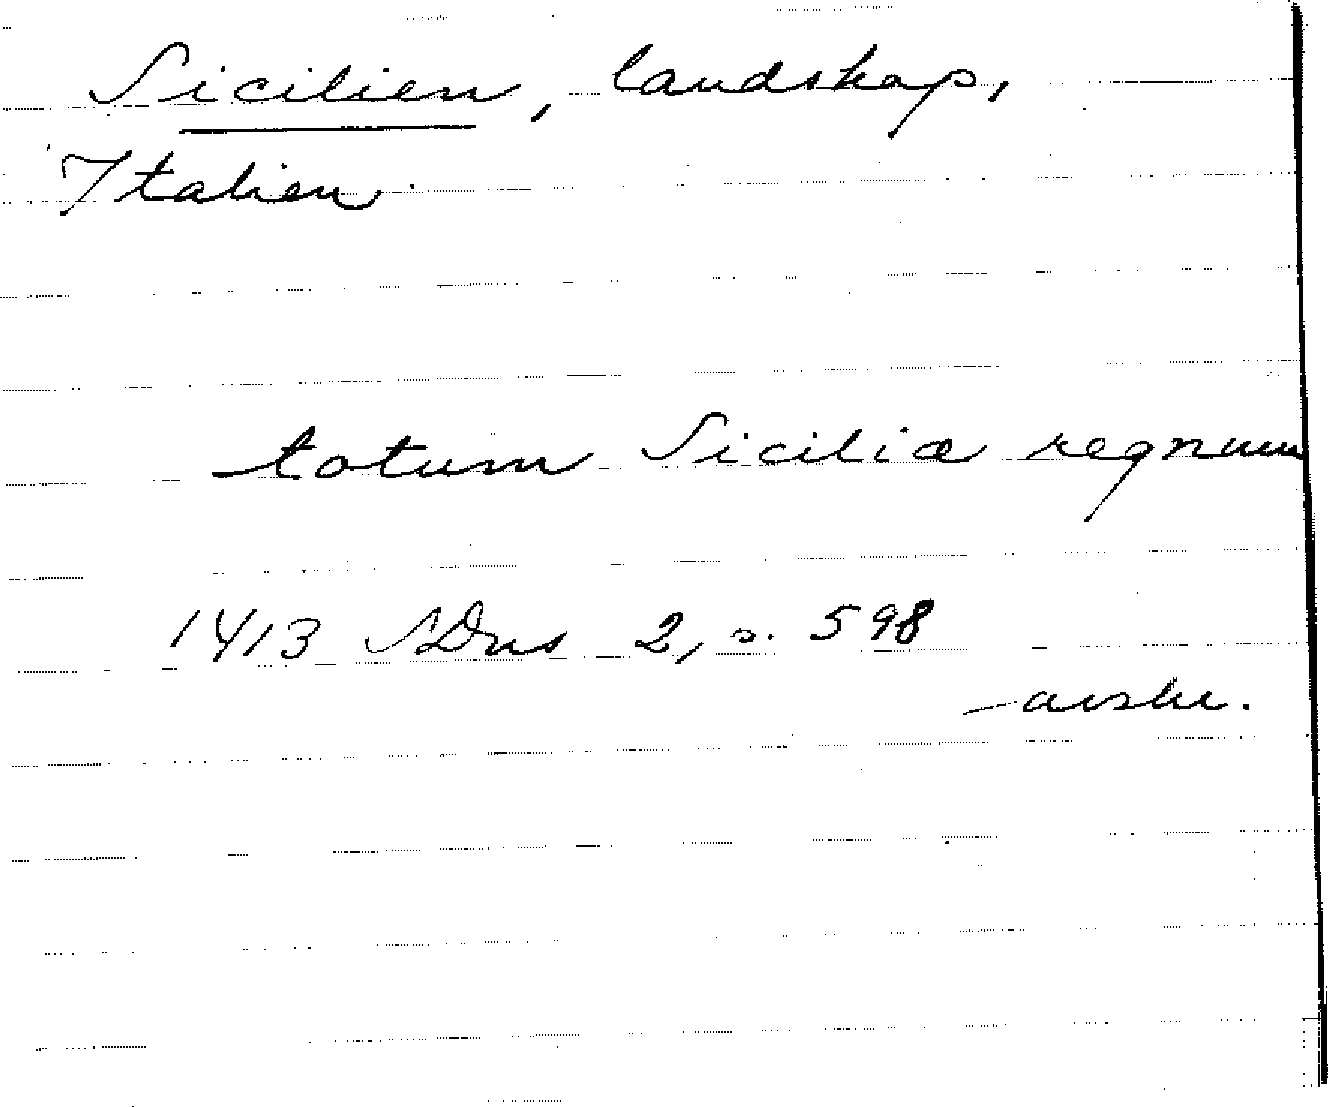 Sicilien, landskap,
Italien.
totum Siciliæ regnum
1413 SDns 2, s. 598
avskr.